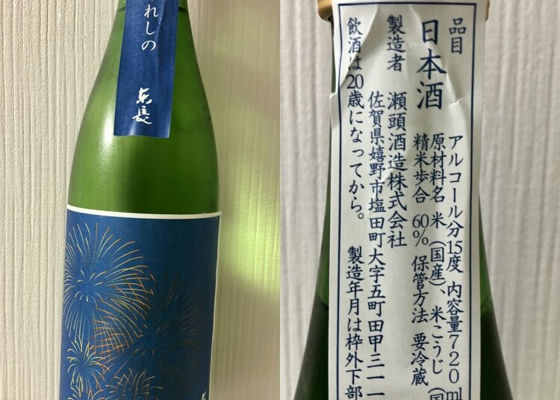 れしの
東長
品目
日本酒
アルコール分15度 内容量720ml
原材料名 米(国産)、米こうじ(国
精米歩合 60% 保管方法 要冷蔵
製造者 瀬頭酒造株式会社
佐賀県嬉野市塩田町大字五町田甲三一一
飲酒は20歳になってから。 製造年月は枠外下部